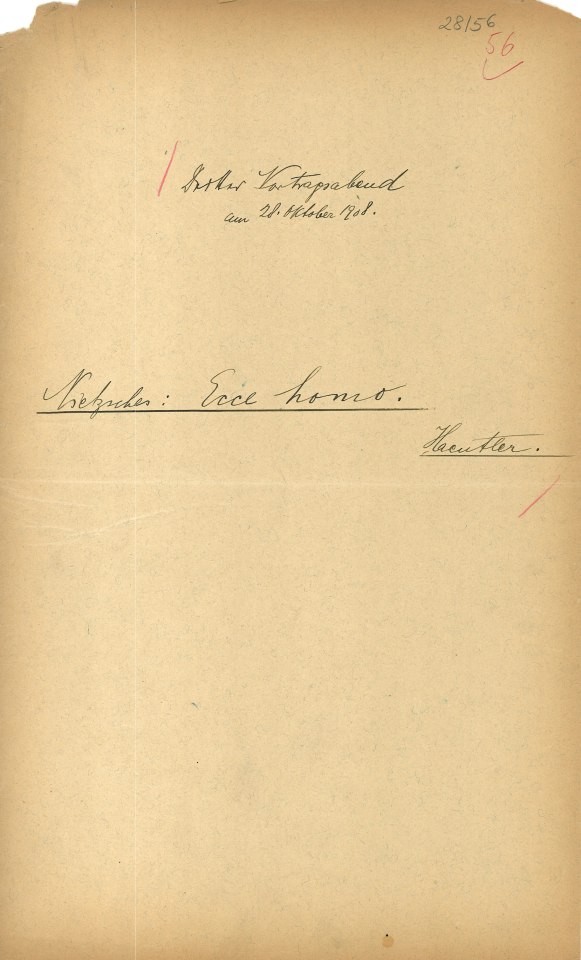 28/56
56
Dritter Vortragsabend
am 28. Oktober 1908.
Nietzsches: Ecce homo.
Haentler.